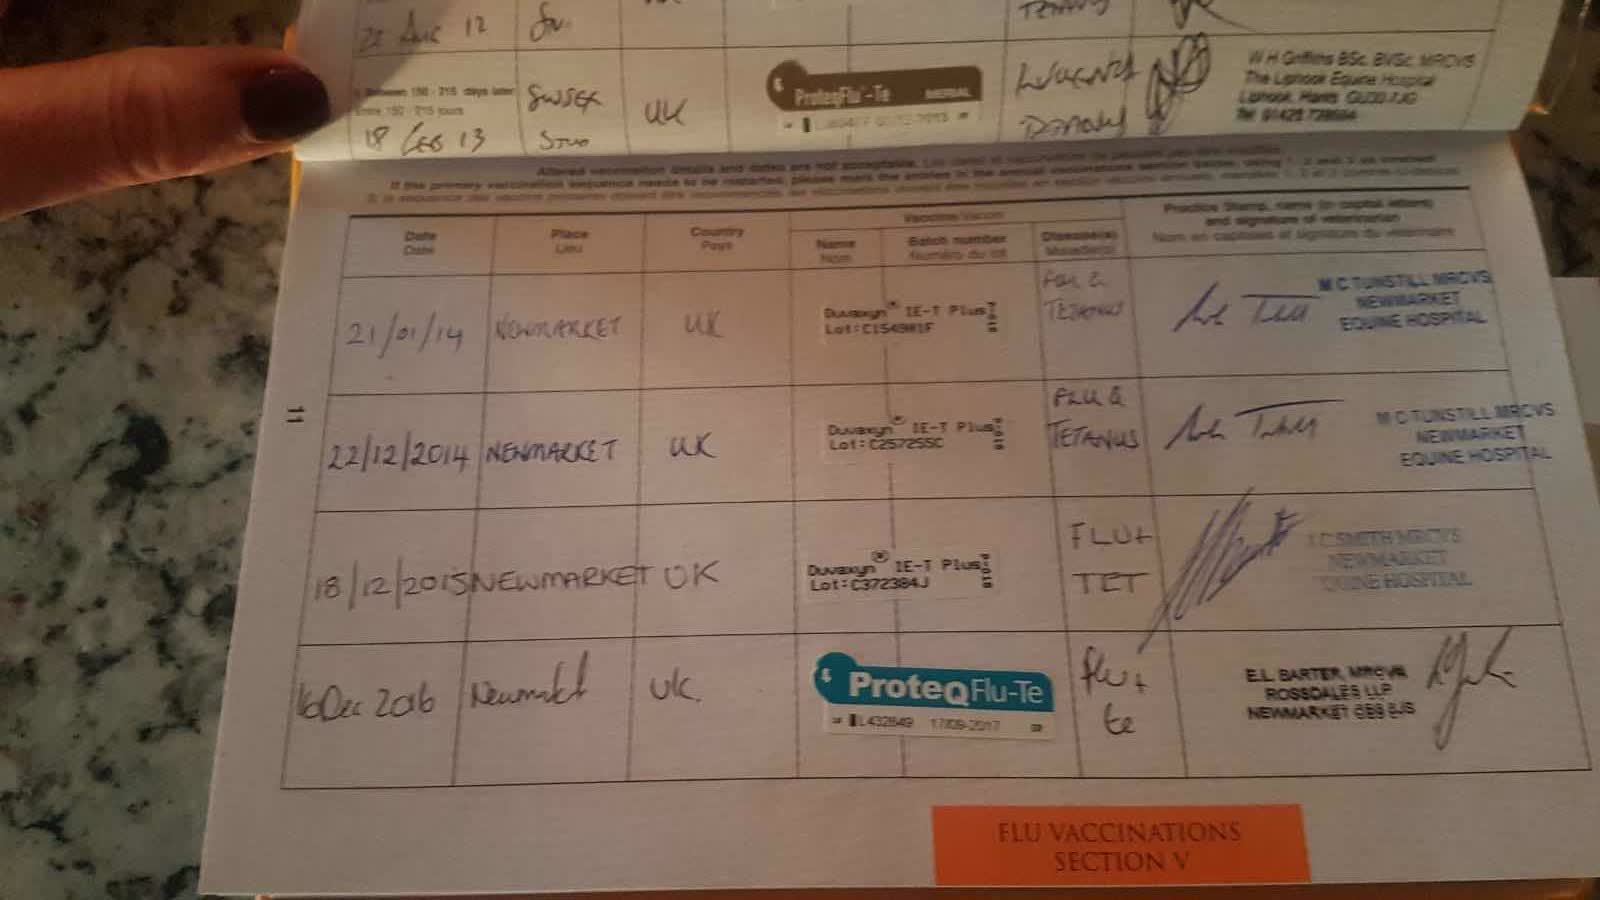 22 Aug 12
W H Griffiths BSc. BVSc. MRCVS
The Liphook Equine Hospital
Liphook, Hants GU30 7JG
Between 150 - 215 days later
Entre 150 - 215 jours
18 Feb 13
SUSSEX
STUD
UK
ProteqFlu-Te MERIAL
Altered vaccination details and dates are not acceptable.
If the primary vaccination sequence needs to be restarted, please mark the entries in the annual vaccinations section below, using 1, 2 and 3
Date
Date
Place
Lieu
Country
Pays
Vaccine/Vaccin
Name
Nom
Batch number
Numéro du lot
Disease(s)
Maladie(s)
Practice Stamp, name (in capital letters)
and signature of veterinarian
Nom en capitales et signature du vétérinaire
21/01/14 NEWMARKET UK
Duvaxyn® IE-T Plus
Lot:C154981F
FLU &
TETANUS
M C TUNSTILL MRCVS
NEWMARKET
EQUINE HOSPITAL
11
22/12/2014 NEWMARKET UK
Duvaxyn® IE-T Plus
Lot:C257255C
FLU &
TETANUS
M C TUNSTILL MRCVS
NEWMARKET
EQUINE HOSPITAL
18/12/2015 NEWMARKET UK
Duvaxyn® IE-T Plus
Lot:C372384J
FLU+
TET
SMITH MRCVS
NEWMARKET
EQUINE HOSPITAL
16 Dec 2016 Newmarket UK.
ProteqFlu-Te
L432849 17/09-2017
flu +
te
E.L. BARTER, MRCVS
ROSSDALES LLP
NEWMARKET CB8 8JS
FLU VACCINATIONS
SECTION V